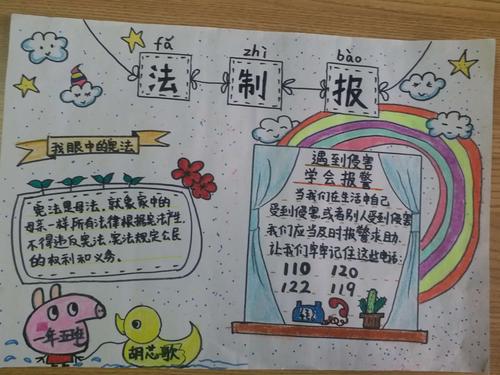 fǎ zhì bào
法 制 报
我眼中的宪法
宪法是母法，就象家中的
母亲一样所有法律根据宪法产生，
不得违反宪法，宪法规定公民
的权利和义务。
遇到侵害
学会报警
当我们在生活中自己
受到侵害或者别人受到侵害
我们应当及时报警求助。
让我们牢牢记住这些电话：
110 120
122 119
一年五班
胡芯歌